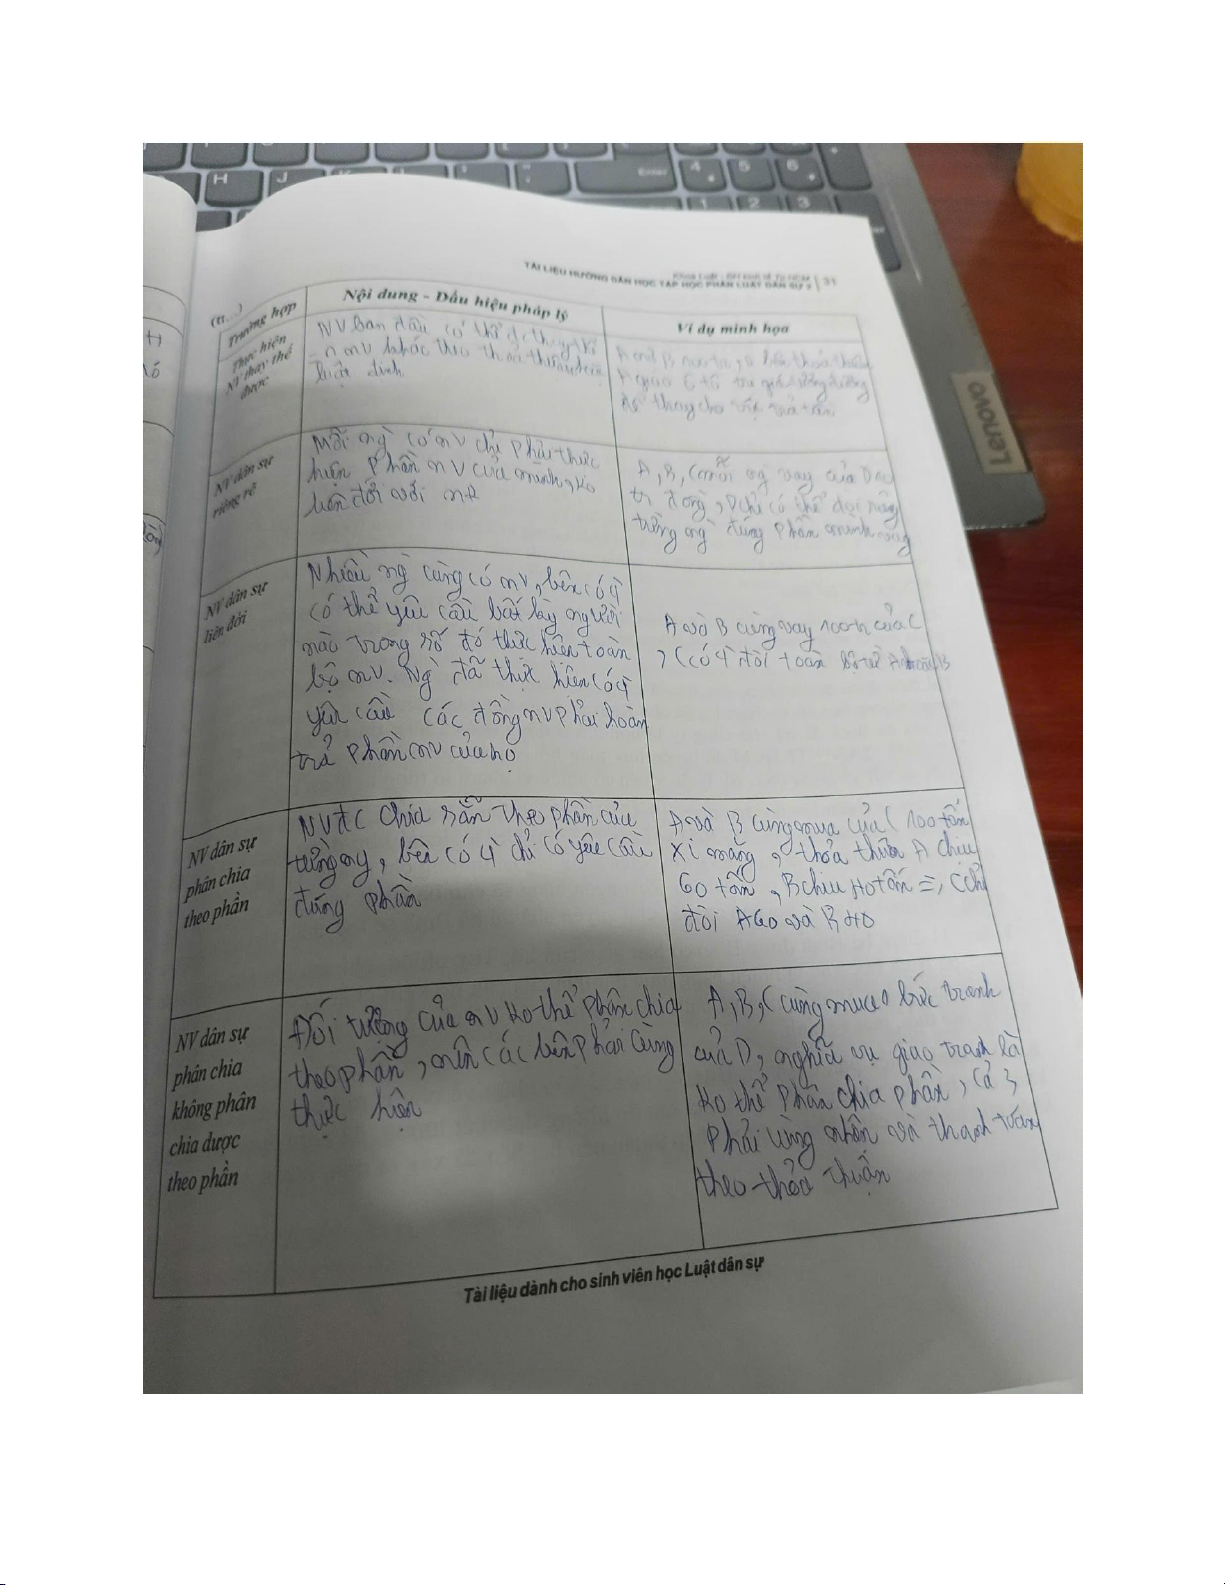 TÀI LIỆU HƯỚNG DẪN HỌC TẬP HỌC PHẦN LUẬT DÂN SỰ 2 | 31
(tt...)
Trường hợp
Nội dung - Dấu hiệu pháp lý
Ví dụ minh họa
Thực hiện
NV thay thế
được
NV ban đầu có thể đc thay thế
NV khác theo thoả thuận
luật định
A B
A giao
để thay cho việc trả tiền
NV dân sự
riêng rẽ
Mỗi ng có nv chỉ phải thực
hiện phần nv của mình, ko
liên đới với nhau
A, B, C mỗi ng vay của D
tr đồng, D chỉ có thể đòi
từng ng đúng phần mình vay
NV dân sự
liên đới
Nhiều ng cùng có nv, bên có q
có thể yêu cầu bất kỳ người
nào trong số đó thực hiện toàn
bộ nv. Ng đã thực hiện có q
yêu cầu các đồng nv phải hoàn
trả phần nv của họ
A và B cùng vay 100tr của C
, C có q đòi toàn bộ từ A hoặc B
NV dân sự
phân chia
theo phần
NV đc chia sẵn theo phần của
từng ng, bên có q chỉ có yêu cầu
đúng phần
A và B cùng mua của C 100 tấn
xi măng, thỏa thuận A chịu
60 tấn, B chịu 40 tấn => C chỉ
đòi A 60 và B 40
NV dân sự
phân chia
không phân
chia được
theo phần
Đối tượng của nv ko thể phân chia
theo phần, nên các bên phải cùng
thực hiện
A, B, C cùng mua 1 bức tranh
của D, nghĩa vụ giao tranh là
ko thể phân chia phần, cả 3
phải cùng nhận và thanh toán
theo thỏa thuận
Tài liệu dành cho sinh viên học Luật dân sự
Lenovo